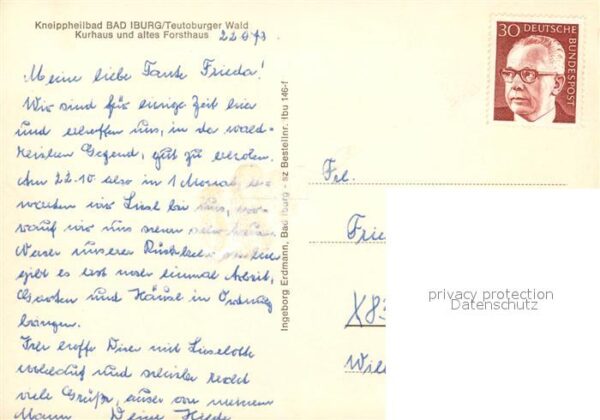 Kneippheilbad BAD IBURG/Teutoburger Wald
Kurhaus und altes Forsthaus
22.9.73
Meine liebe Tante Frieda!
Wir sind für einige Zeit hier
und erhoffen uns, in der wald-
reichen Gegend, gut zu erholen.
Am 22.10. also in 1 Monat, er-
warten wir Liesl bei uns, wor-
auf wir uns
Wegen unserer Rückkehr
gibt es erst noch einmal Arbeit,
Garten und Häusl in Ordnung
bringen.
hoffe Dir mit Lieselotte
und
viele Grüße, auch von meinem
Mann Deine Hilde
Ingeborg Erdmann, Bad Iburg - sz Bestellnr. Ibu 146-f
30 DEUTSCHE BUNDESPOST
Frl.
Frie
X83
Wil
privacy protection
Datenschutz